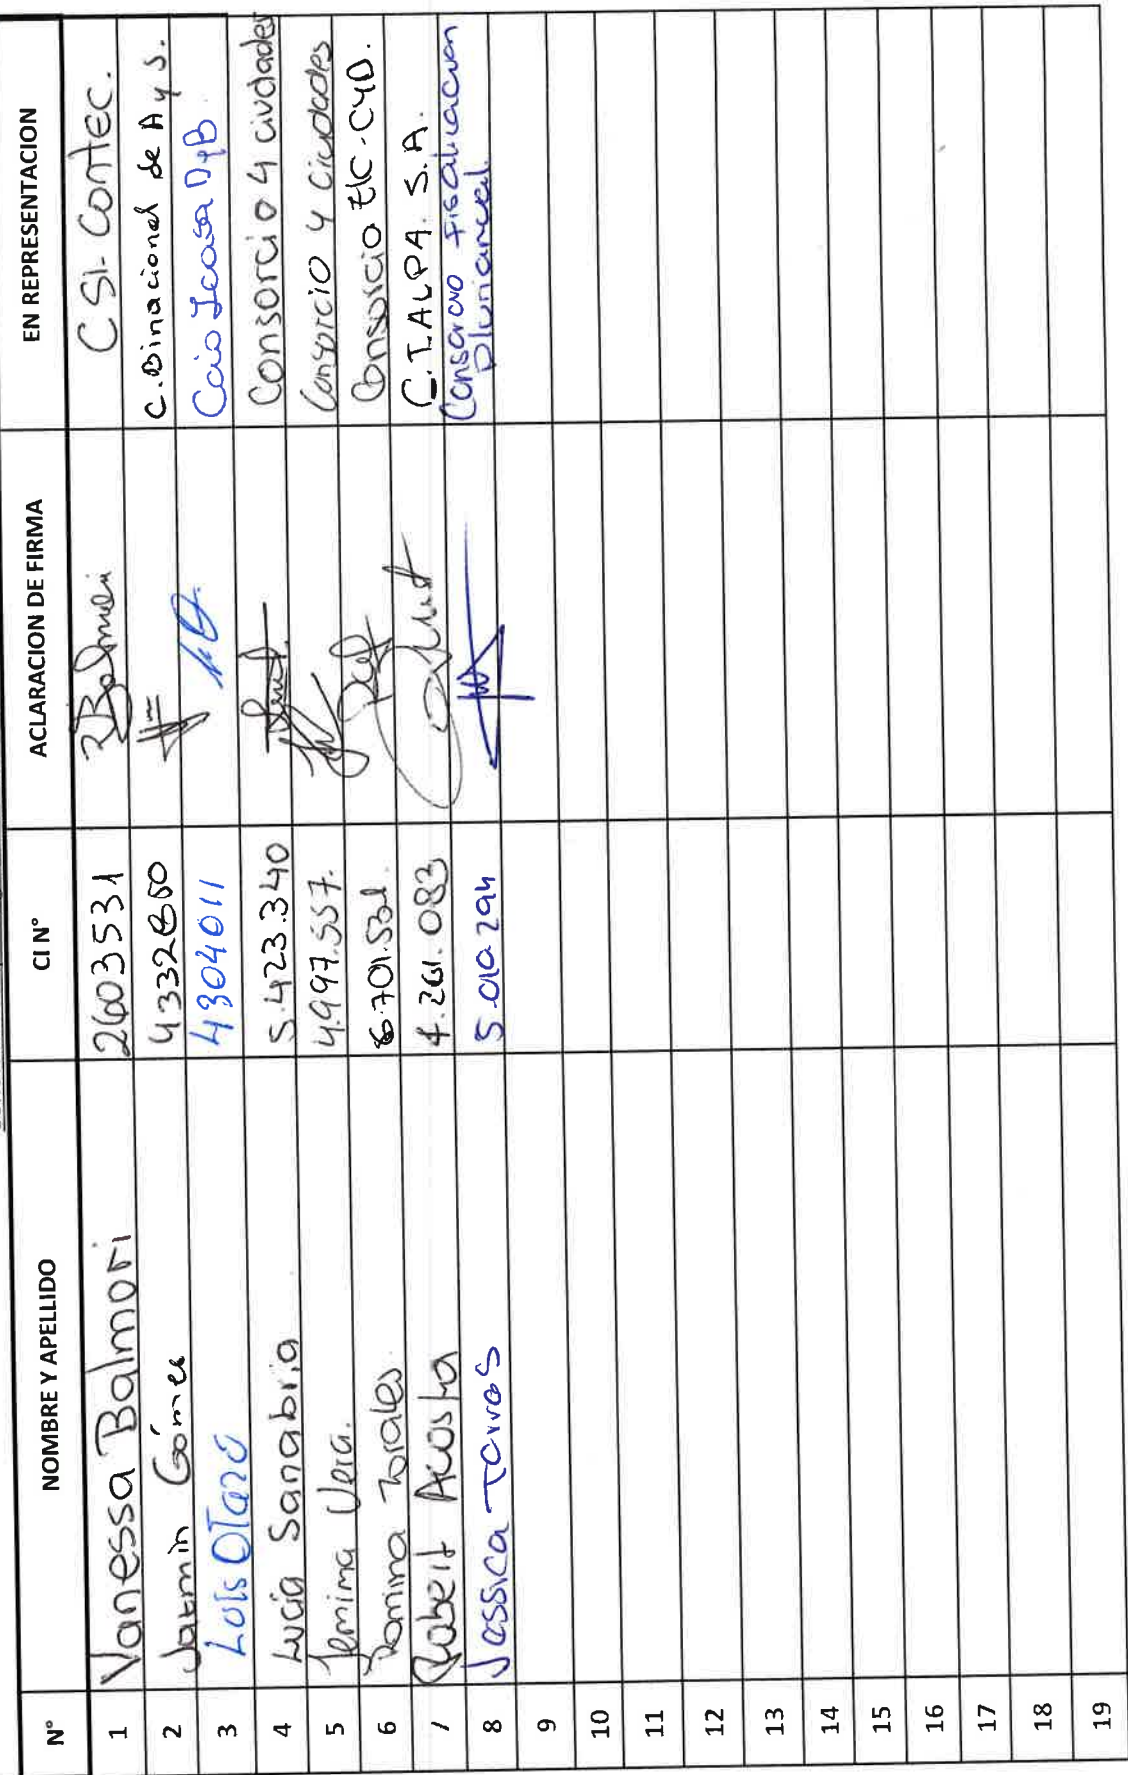 N° NOMBRE Y APELLIDO CI N° ACLARACION DE FIRMA EN REPRESENTACION
1 Vanessa Balmori 2603531 Balmori CSI-Contec.
2 Jazmín Gómez 4332860 C. Binacional de A y S.
3 Luis Otazú 4304011
4 Lucía Sanabria 5.423.340 Consorcio 4 ciudades
5 Jemima Vera. 4.997.557. Consorcio 4 Ciudades
6 Romina Torales. 6.701.531. Consorcio TIC-CYD.
7 Robert Acosta 4.261.083 C.I.ALPA. S.A.
8 Jessica Torres 5.010.294 Consorcio Fiscalizacion
Plurianual.
9
10
11
12
13
14
15
16
17
18
19